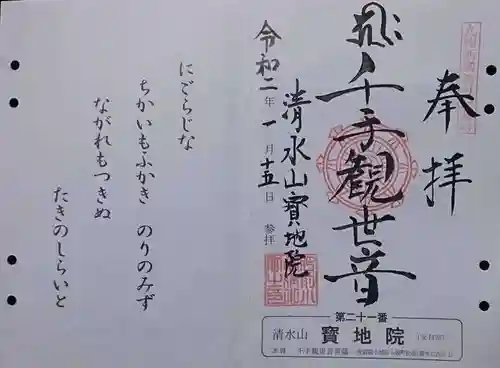 奉拝
千手観世音
清水山寶地院
令和二年一月十五日 参拝
第二十一番
清水山 寶地院
にごらじな
ちかいもふかき のりのみず
ながれもつきぬ
たきのしらいと